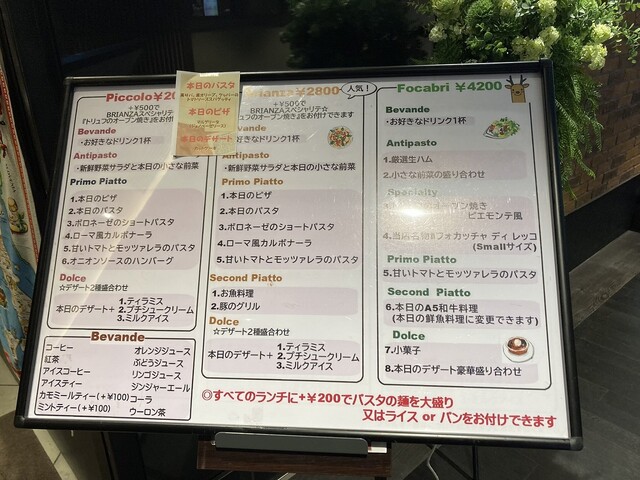 本日のパスタ
本日のピザ
本日のデザート
Piccolo ¥20
+¥500で
BRIANZAスペシャリテ
『トリュフのオーブン焼き』をお付け
Bevande
・お好きなドリンク1杯
Antipasto
・新鮮野菜サラダと本日の小さな前菜
Primo Piatto
1.本日のピザ
2.本日のパスタ
3.ボロネーゼのショートパスタ
4.ローマ風カルボナーラ
5.甘いトマトとモッツァレラのパスタ
6.オニオンソースのハンバーグ
Dolce
☆デザート2種盛合わせ
本日のデザート+
1.ティラミス
2.プチシュークリーム
3.ミルクアイス
Bevande
コーヒー
紅茶
アイスコーヒー
アイスティー
カモミールティー(+¥100)
ミントティー(+¥100)
オレンジジュース
ぶどうジュース
リンゴジュース
ジンジャーエール
コーラ
ウーロン茶
rianza ¥2800
人気!
+¥500で
BRIANZAスペシャリテ☆
ュフのオーブン焼き』をお付けできます
vande
好きなドリンク1杯
Antipasto
・新鮮野菜サラダと本日の小さな前菜
Primo Piatto
1.本日のピザ
2.本日のパスタ
3.ボロネーゼのショートパスタ
4.ローマ風カルボナーラ
5.甘いトマトとモッツァレラのパスタ
Second Piatto
1.お魚料理
2.豚のグリル
Dolce
☆デザート2種盛合わせ
本日のデザート+
1.ティラミス
2.プチシュークリーム
3.ミルクアイス
Focabri ¥4200
Bevande
・お好きなドリンク1杯
Antipasto
1.厳選生ハム
2.小さな前菜の盛り合わせ
Specialty
オーブン焼き
ピエモンテ風
4.当店名物!!フォカッチャ ディ レッコ
(Smallサイズ)
Primo Piatto
5.甘いトマトとモッツァレラのパスタ
Second Piatto
6.本日のA5和牛料理
(本日の鮮魚料理に変更できます)
Dolce
7.小菓子
8.本日のデザート豪華盛り合わせ
◎すべてのランチに+¥200でパスタの麺を大盛り
又はライス or パンをお付けできます